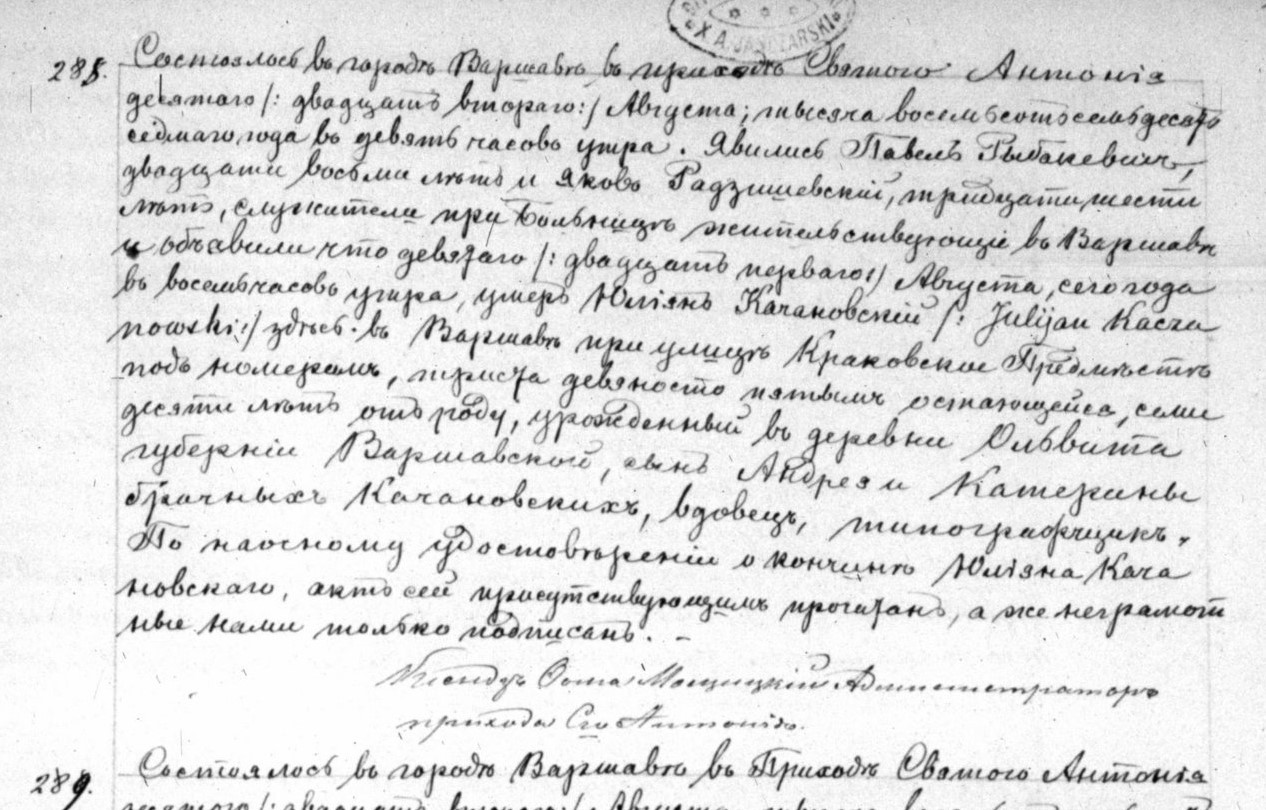 X. A. JANCZARSKI
288. Состоялось въ городѣ Варшавѣ въ приходѣ Святого Антонія
десятаго /: двадцать втораго :/ Августа; тысяча восемьсотъ семьдесятъ
седмаго года въ девять часовъ утра. Явились Павелъ Рыбакевичъ,
двадцати восьми лѣтъ и Яковъ Радзишевскій, тридцати шести
лѣтъ, служители при Больницѣ жительствующіе въ Варшавѣ
и объявили что девятаго /: двадцать перваго :/ Августа, сего года
въ восемь часовъ утра, умеръ Юліянъ Качановскій /: Julijan Kacza
nowski :/ здѣсь въ Варшавѣ при улицѣ Краковское Предмѣстье
подъ номеромъ, триста девяносто пятымъ остающейся, семи
десяти лѣтъ отъ роду, урожденный въ деревни Ольвита
губерніи Варшавской, сынъ Андрея и Катерины
брачныхъ Качановскихъ, вдовецъ, типографщикъ.
По наосному удостовѣреніи о кончинѣ Юліяна Кача
новскаго, актъ сей присутствующимъ прочатанъ, а же неграмот
ные нами только подписанъ. –
Ксендзъ Ѳома Мощицкій Администраторъ
прихода Сго Антонія.
289. Состоялось въ городѣ Варшавѣ въ Приходѣ Святого Антонія
десятаго /: двадцать втораго :/ Августа